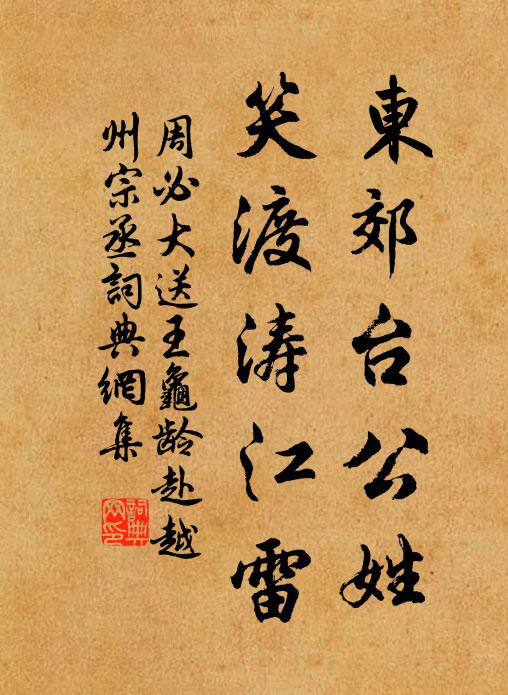 東郊台公姓
笑渡涛江雷
周必大送王龜龄赴越
州宗丞詞典網集
詞典
网印